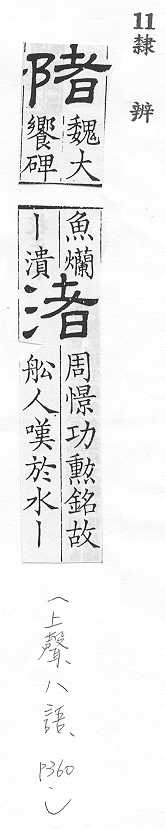 11隸辨
陼
魏大
饗碑
魚爛
｜潰
渚
周憬功勲銘故
舩人嘆於水｜
(上聲、八語、P360。)